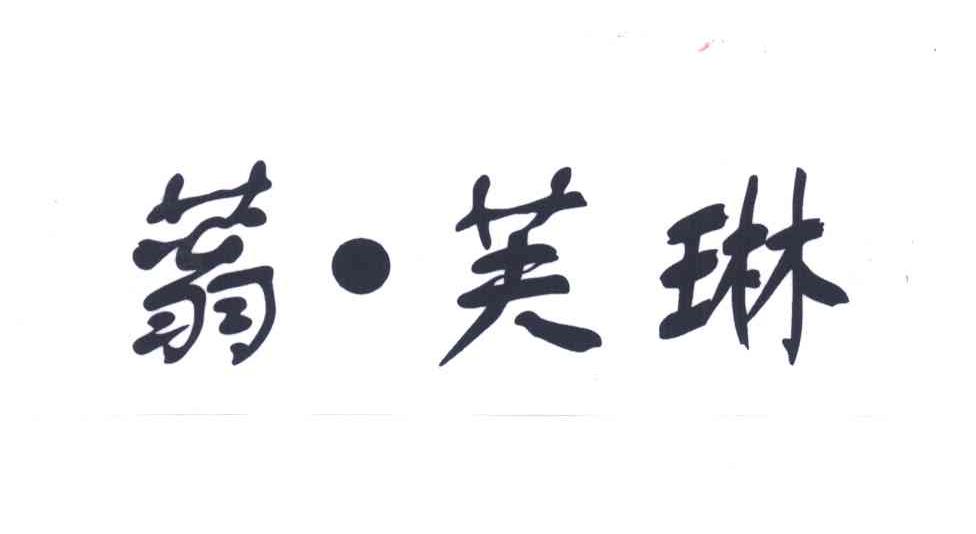 蓊·芙琳